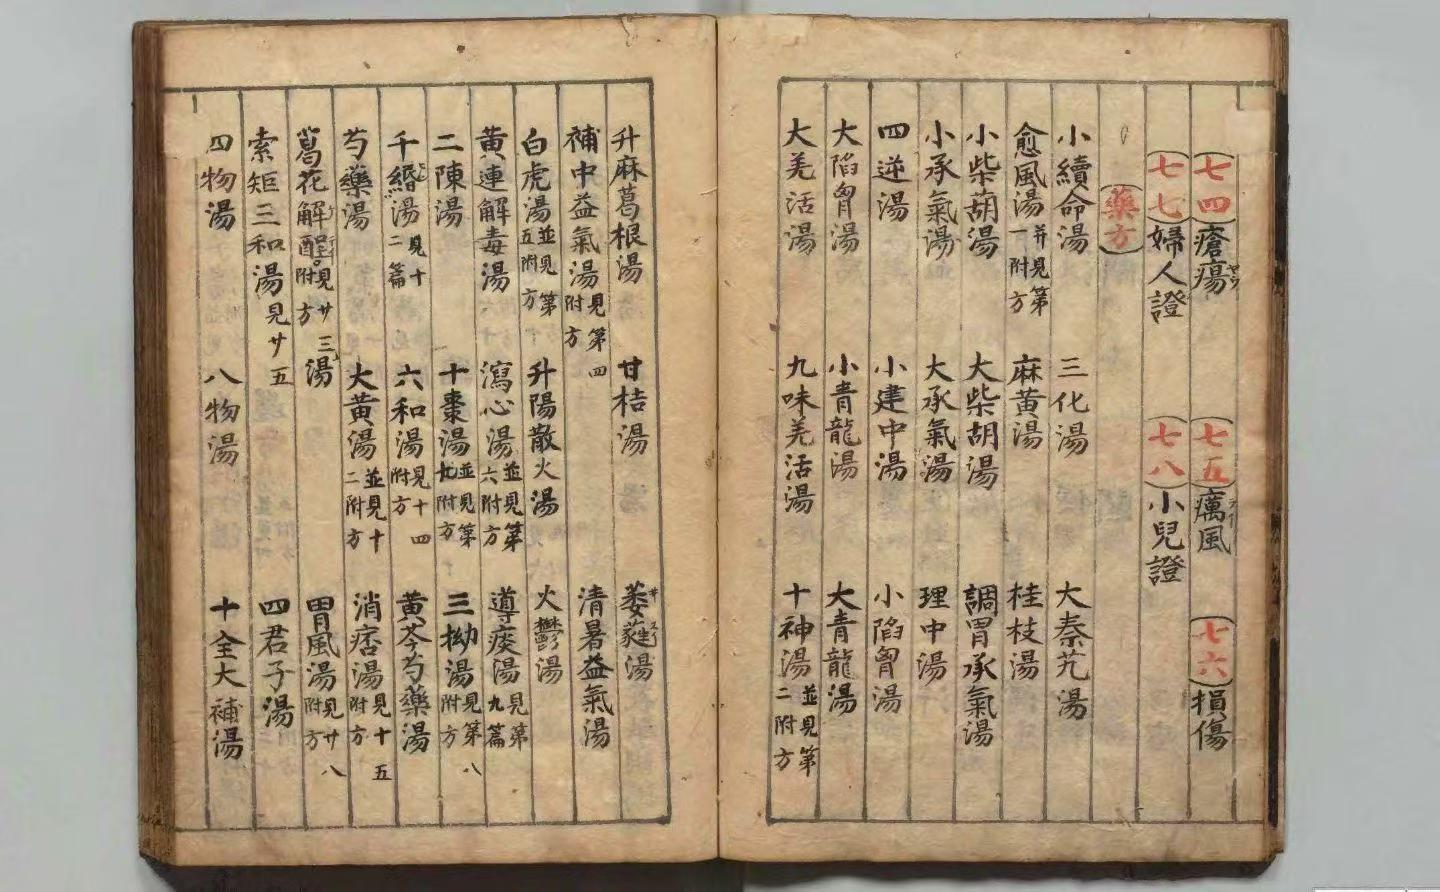 七四 瘡瘍 七五 癘風 七六 損傷
七七 婦人證 七八 小兒證
藥方
小續命湯 三化湯 大秦艽湯
愈風湯 并見第一附方 麻黃湯 桂枝湯
小柴胡湯 大柴胡湯 調胃承氣湯
小承氣湯 大承氣湯 理中湯
四逆湯 小建中湯 小陷胷湯
大陷胷湯 小青龍湯 大青龍湯
大羌活湯 九味羌活湯 十神湯 並見第二附方
升麻葛根湯 甘桔湯 萎蕤湯
補中益氣湯 見第四附方 清暑益氣湯
白虎湯 並見第五附方 升陽散火湯 火鬱湯
黃連解毒湯 瀉心湯 並見第六附方 導痰湯 見第九篇
二陳湯 十棗湯 並見第九附方 三拗湯 見第八附方
千緡湯 見十二篇 六和湯 見十四附方 黃芩芍藥湯
芍藥湯 大黃湯 並見十二附方 消痞湯 見十五附方
葛花解酲湯 見廿三附方 胃風湯 見廿八附方
索矩三和湯 見廿五方 四君子湯
四物湯 八物湯 十全大補湯